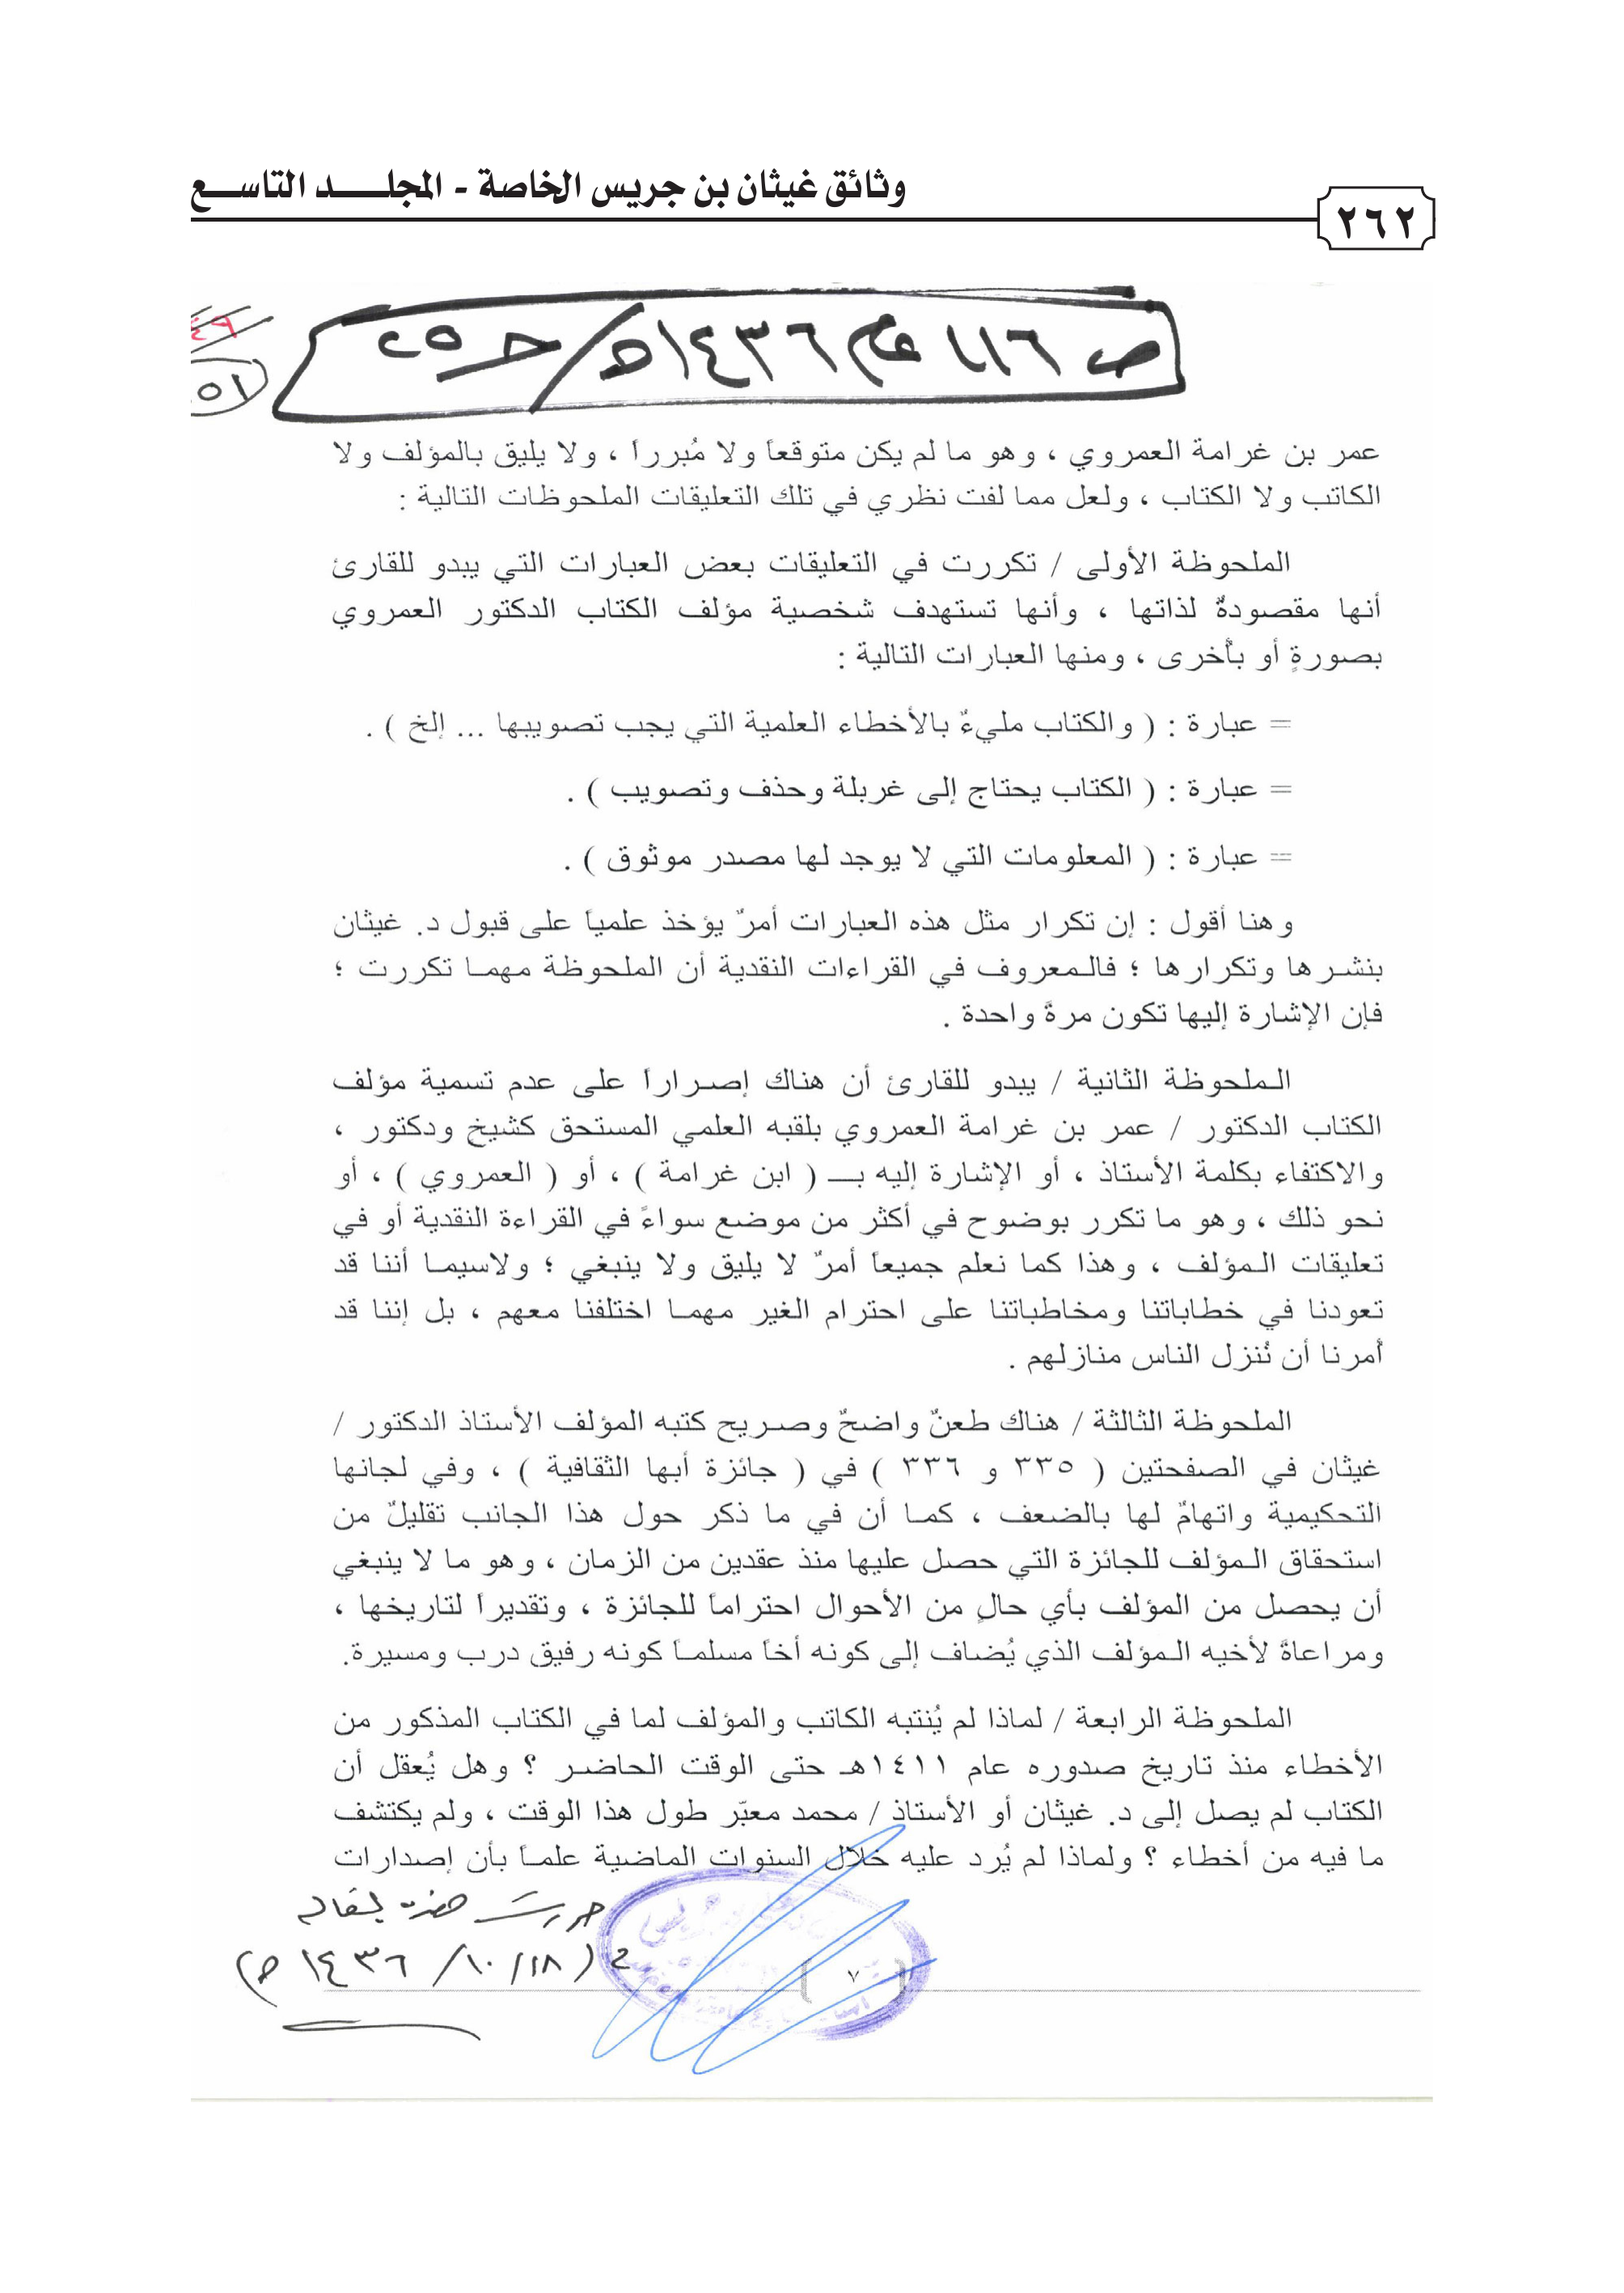 وثائق غيثان بن جريس الخاصة - المجلـــد التاســـع
٢٦٢
عمر بن غرامة العمروي ، وهو ما لم يكن متوقعاً ولا مُبرراً ، ولا يليق بالمؤلف ولا
الكاتب ولا الكتاب ، ولعل مما لفت نظري في تلك التعليقات الملحوظات التالية :
الملحوظة الأولى / تكررت في التعليقات بعض العبارات التي يبدو للقارئ
أنها مقصودةٌ لذاتها ، وأنها تستهدف شخصية مؤلف الكتاب الدكتور العمروي
بصورةٍ أو بأُخرى ، ومنها العبارات التالية :
= عبارة : ( والكتاب مليءٌ بالأخطاء العلمية التي يجب تصويبها ... إلخ ) .
= عبارة : ( الكتاب يحتاج إلى غربلة وحذف وتصويب ) .
= عبارة : ( المعلومات التي لا يوجد لها مصدر موثوق ) .
وهنا أقول : إن تكرار مثل هذه العبارات أمرٌ يؤخذ علمياً على قبول د. غيثان
بنشرها وتكرارها ؛ فالمعروف في القراءات النقدية أن الملحوظة مهما تكررت ؛
فإن الإشارة إليها تكون مرةً واحدة .
الملحوظة الثانية / يبدو للقارئ أن هناك إصراراً على عدم تسمية مؤلف
الكتاب الدكتور / عمر بن غرامة العمروي بلقبه العلمي المستحق كشيخ ودكتور ،
والاكتفاء بكلمة الأستاذ ، أو الإشارة إليه بـــ ( ابن غرامة ) ، أو ( العمروي ) ، أو
نحو ذلك ، وهو ما تكرر بوضوح في أكثر من موضع سواءً في القراءة النقدية أو في
تعليقات المؤلف ، وهذا كما نعلم جميعاً أمرٌ لا يليق ولا ينبغي ؛ ولاسيما أننا قد
تعودنا في خطاباتنا ومخاطباتنا على احترام الغير مهما اختلفنا معهم ، بل إننا قد
أُمرنا أن نُنزل الناس منازلهم .
الملحوظة الثالثة / هناك طعنٌ واضحٌ وصريح كتبه المؤلف الأستاذ الدكتور /
غيثان في الصفحتين ( ٣٣٥ و ٣٣٦ ) في ( جائزة أبها الثقافية ) ، وفي لجانها
التحكيمية واتهامٌ لها بالضعف ، كما أن في ما ذكر حول هذا الجانب تقليلٌ من
استحقاق المؤلف للجائزة التي حصل عليها منذ عقدين من الزمان ، وهو ما لا ينبغي
أن يحصل من المؤلف بأي حالٍ من الأحوال احتراماً للجائزة ، وتقديراً لتاريخها ،
ومراعاةً لأخيه المؤلف الذي يُضاف إلى كونه أخاً مسلماً كونه رفيق درب ومسيرة.
الملحوظة الرابعة / لماذا لم يُنتبه الكاتب والمؤلف لما في الكتاب المذكور من
الأخطاء منذ تاريخ صدوره عام ١٤١١هـ حتى الوقت الحاضر ؟ وهل يُعقل أن
الكتاب لم يصل إلى د. غيثان أو الأستاذ / محمد معبّر طول هذا الوقت ، ولم يكتشف
ما فيه من أخطاء ؟ ولماذا لم يُرد عليه خلال السنوات الماضية علماً بأن إصدارات
(١٨/١٠/١٤٣٦هـ)
٧